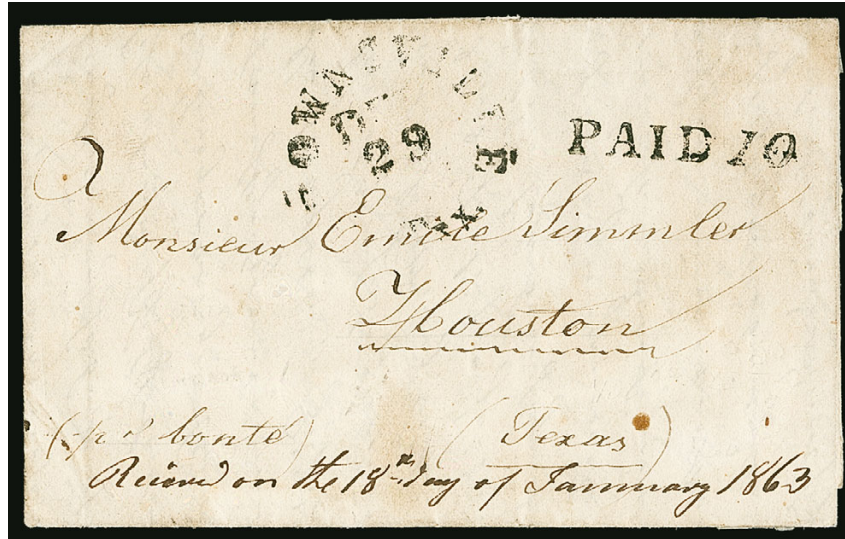 BROWNSVILLE
29
TEX
PAID 10
A
Monsieur Emile Simmler
Houston
(pr bonté) (Texas)
Reiievd on the 18th day of Jammary 1863